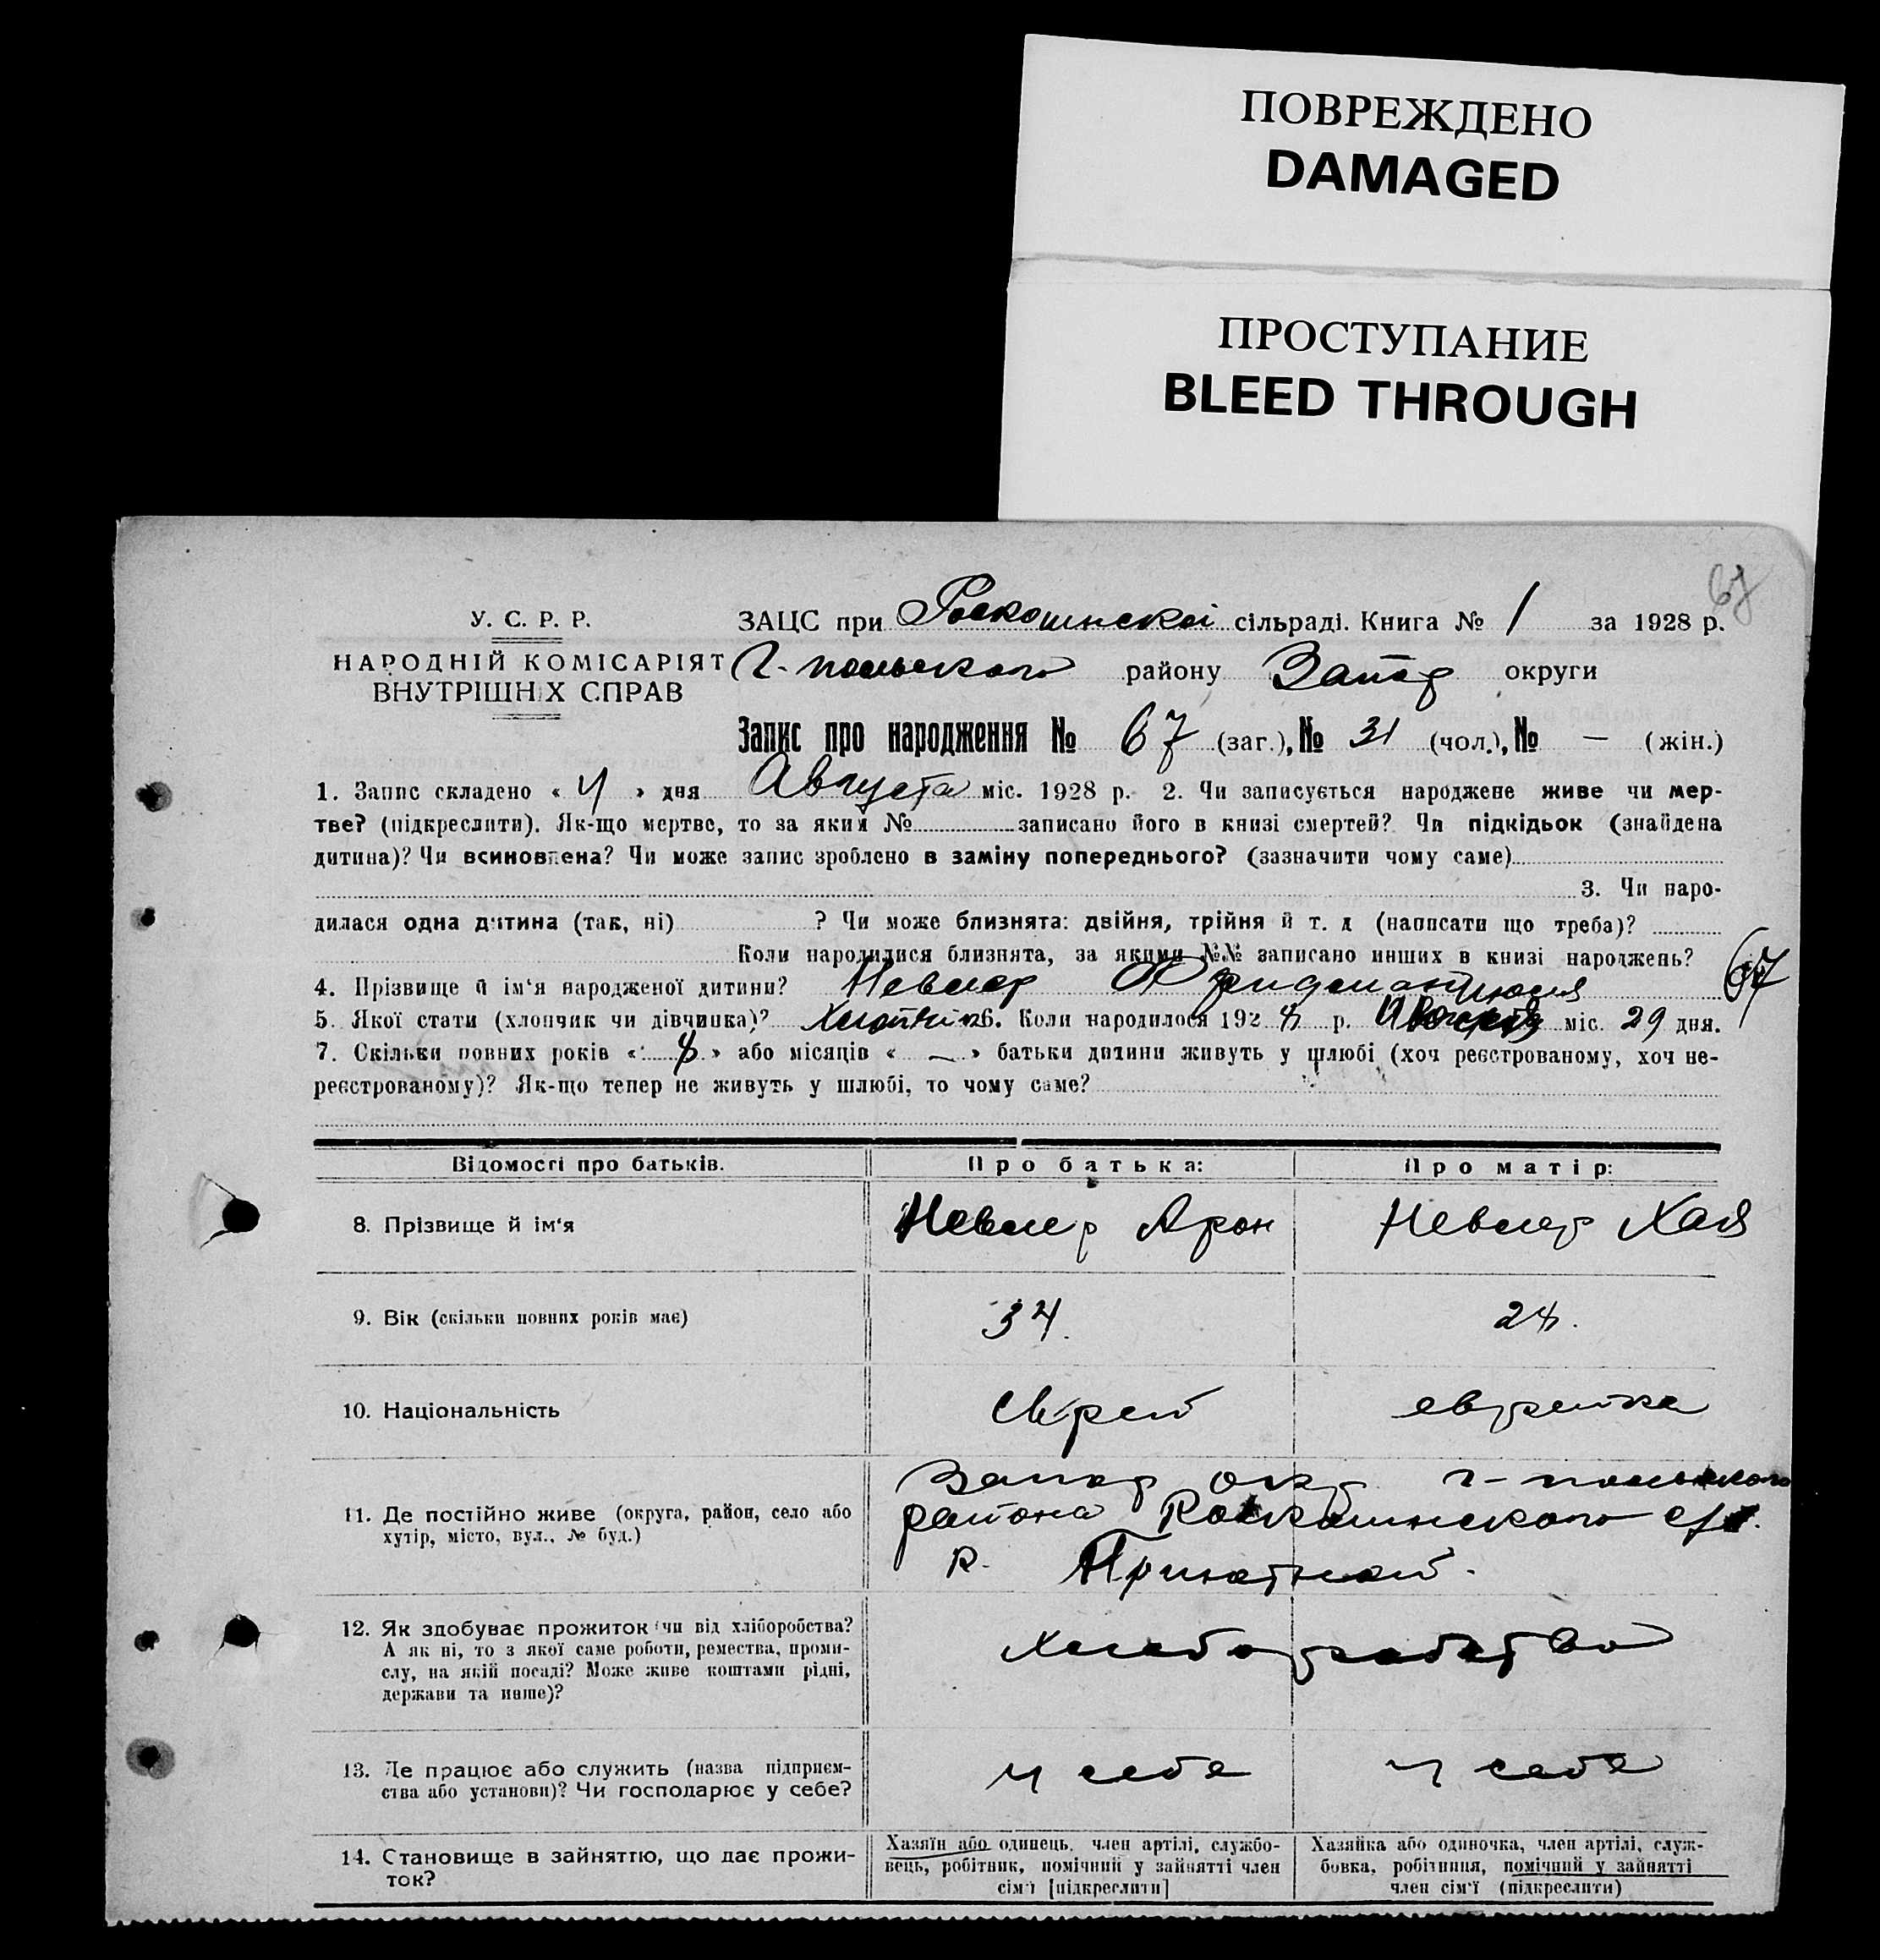 ПОВРЕЖДЕНО
DAMAGED
ПРОСТУПАНИЕ
BLEED THROUGH
67
У. С. Р. Р.
НАРОДНІЙ КОМІСАРІЯТ
ВНУТРІШНІХ СПРАВ
ЗАЦС при Роскошнской сільраді. Книга № 1 за 1928 р.
г-польского району Запор округи
Запис про народження № 67 (заг.), № 31 (чол.), № — (жін.)
1. Запис складено « 4 » дня Августа міс. 1928 р. 2. Чи записується народжене живе чи мер-
тве? (підкреслити). Як-що мертве, то за яким № записано його в книзі смертей? Чи підкідьок (знайдена
дитина)? Чи всиновлена? Чи може запис зроблено в заміну попереднього? (зазначити чому саме)
3. Чи наро-
дилася одна дитина (так, ні) ? Чи може близнята: двійня, трійня й т. д (написати що треба)?
Коли народилися близнята, за якими №№ записано инших в книзі народжень?
4. Прізвище й ім‘я народженої дитини? Невлер Фридман 67
июля
5. Якої стати (хлопчик чи дівчинка)? 6. Коли народилося 1928 р. міс. 29 дня.
7. Скільки повних років « 8 » або місяців « — » батьки дитини живуть у шлюбі (хоч реєстрованому, хоч не-
реєстрованому)? Як-що тепер не живуть у шлюбі, то чому саме?
Відомості про батьків. Про батька: Про матір:
8. Прізвище й ім‘я Невлер Арон Невлер Хая
9. Вік (скільки повних років має) 34. 28.
10. Національність Еврей еврейка
11. Де постійно живе (округа, район, село або
хутір, місто, вул., № буд.)
Запор окр. г-польского
района Роскошинского с/с.
к. Приютной.
12. Як здобуває прожиток (чи від хліборобства?
А як ні, то з якої саме роботи, ремества, проми-
слу, на якій посаді? Може живе коштами рідні,
держави та инше)?
Хлеборобство
13. Де працює або служить (назва підприєм-
ства або установи)? Чи господарює у себе?
У себе у себе
14. Становище в зайняттю, що дає прожи-
ток?
Хазяїн або одинець, член артілі, службо-
вець, робітник, помічний у зайнятті член
сім‘ї [підкреслити]
Хазяйка або одиночка, член артілі, служ-
бовка, робітниця, помічний у зайнятті
член сім‘ї (підкреслити)